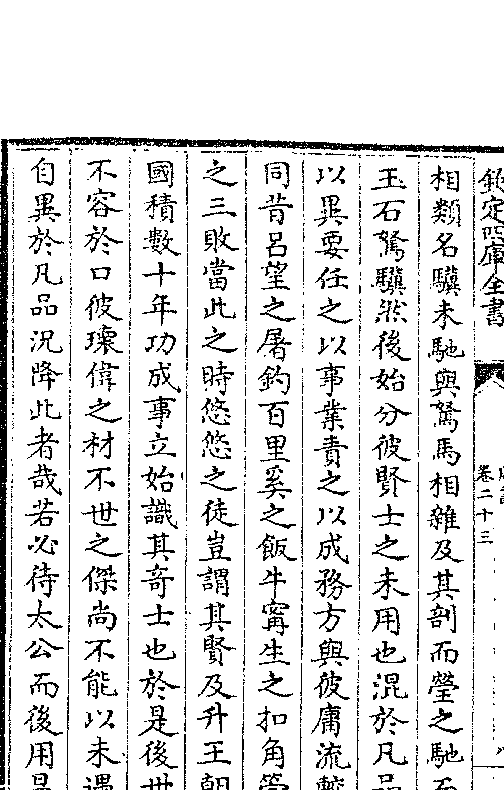 欽定四庫全書
卷二十三
相類名驥未馳與駑馬相雜及其剖而瑩之馳而
玉石駑驥然後始分彼賢士之未用也混於凡品
以異要任之以事業責之以成務方與彼庸流較
同昔呂望之屠釣百里奚之飯牛甯生之扣角管
之三敗當此之時悠悠之徒豈謂其賢及升王朝
國積數十年功成事立始識其奇士也於是後世
不容於口彼瓌偉之材不世之傑尚不能以未遇
自異於凡品況降此者哉若必待太公而後用是